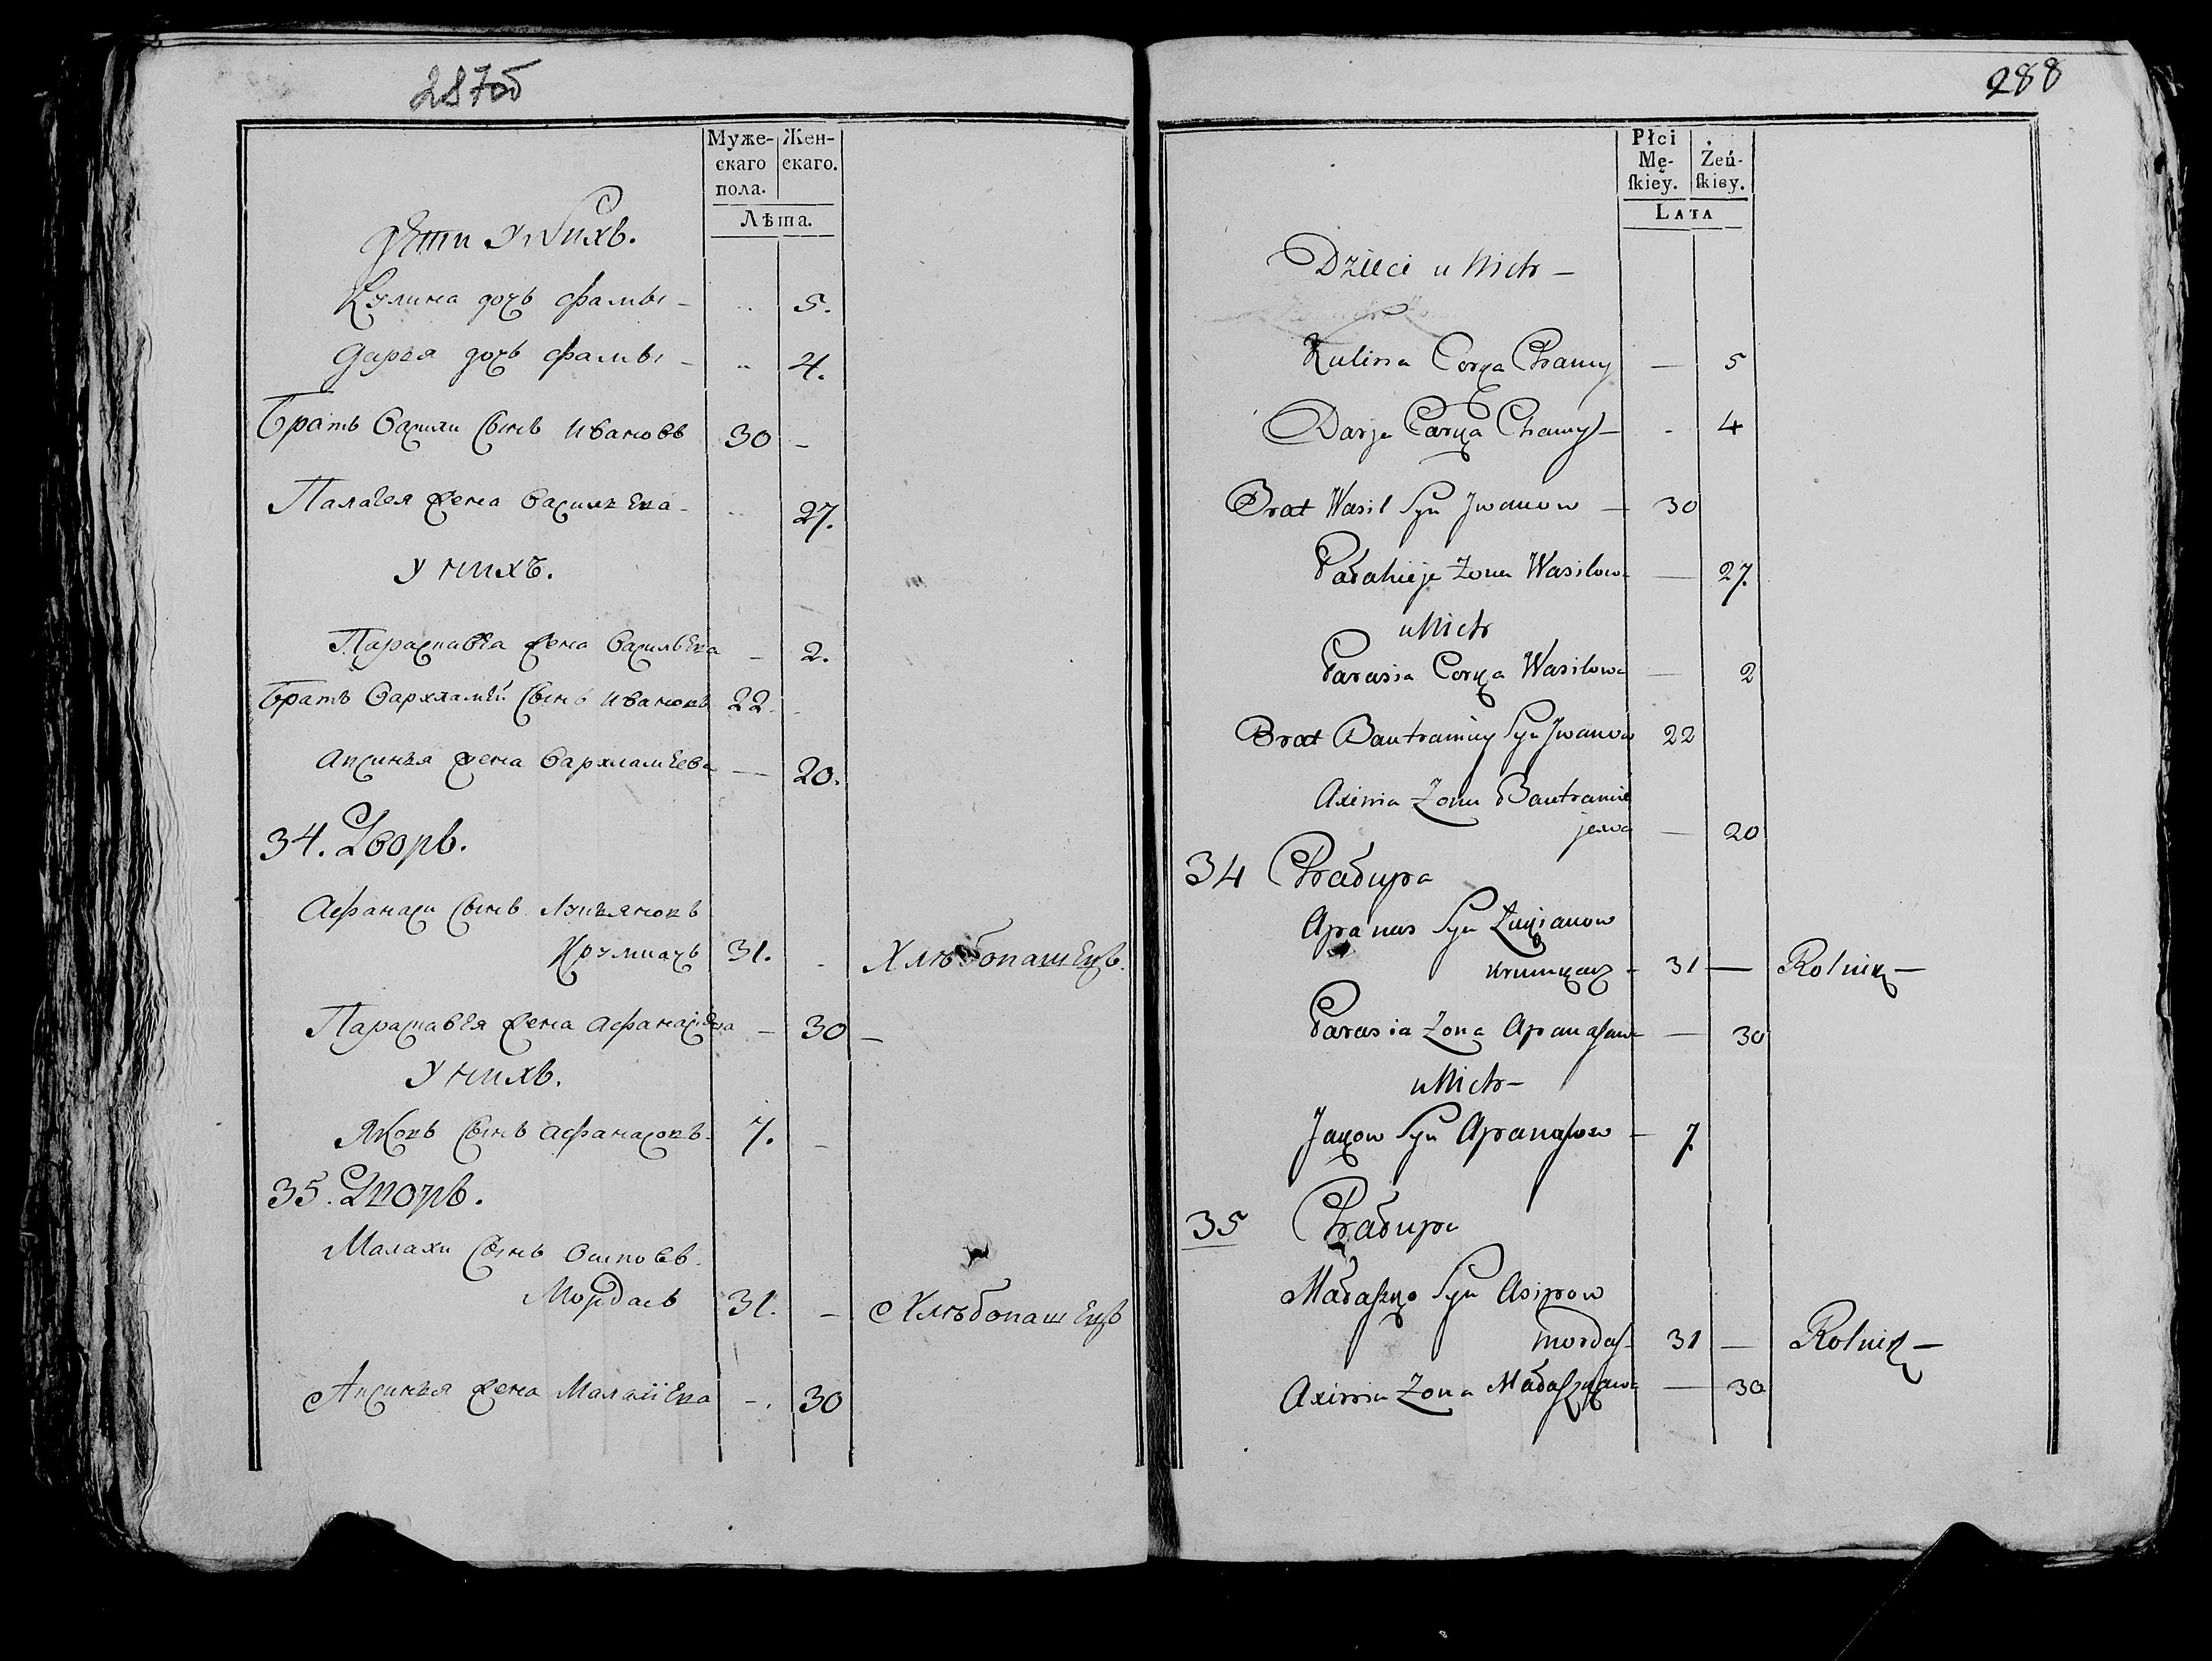 287об
Муже-
скаго
пола.
Жен-
скаго.
Лѣта.
Дѣти у Нихъ.
Кулина дочь Фамы - 5.
Дарья дочь Фамы - 4.
Братъ Васили Сынъ Ивановъ 30 -
Палагея жена Васильева - 27.
у нихъ.
Параскавея жена Васильева - 2.
Братъ Вархламей Сынъ Ивановъ 22 -
Аксинья жена Вархламеева — 20.
34. Дворъ.
Афанаси Сынъ Лукьяновъ
31. - Хлѣбопашецъ.
Параскавея жена Афанасьева - 30 -
у нихъ.
Яковъ Сынъ Афанасовъ 7. -
35. Дворъ.
Малахи Сынъ Осиповъ
Мордасъ 31. - Хлѣбопашецъ
Аксинья жена Малахиева - 30
288
Płci
Mę-
ſkiey.
Żeń-
ſkiey.
LATA
Dzieci u Nich -
Kulina Corka Chamy — 5
Darja Corka Chamy - 4
Brat Wasil Syn Jwanow - 30
Pałahieja Zona Wasilowa — 27.
u Nich
Parasia Corka Wasilowa — 2
Brat Bautramiey Syn Jwanow 22
Axinia Zona Bautramie
jewa — 20
34 Chałupa
Apanas Syn Łukjanow
31 — Rolnik -
Parasia Zona Apanaſowa — 30
u Nich -
Jakow Syn Apanaſow - 7
35 Chałupa
Małaſzko Syn Asipow
Mordaſ - 31 — Rolnik -
Axinia Zona Małaſzkowa — 30